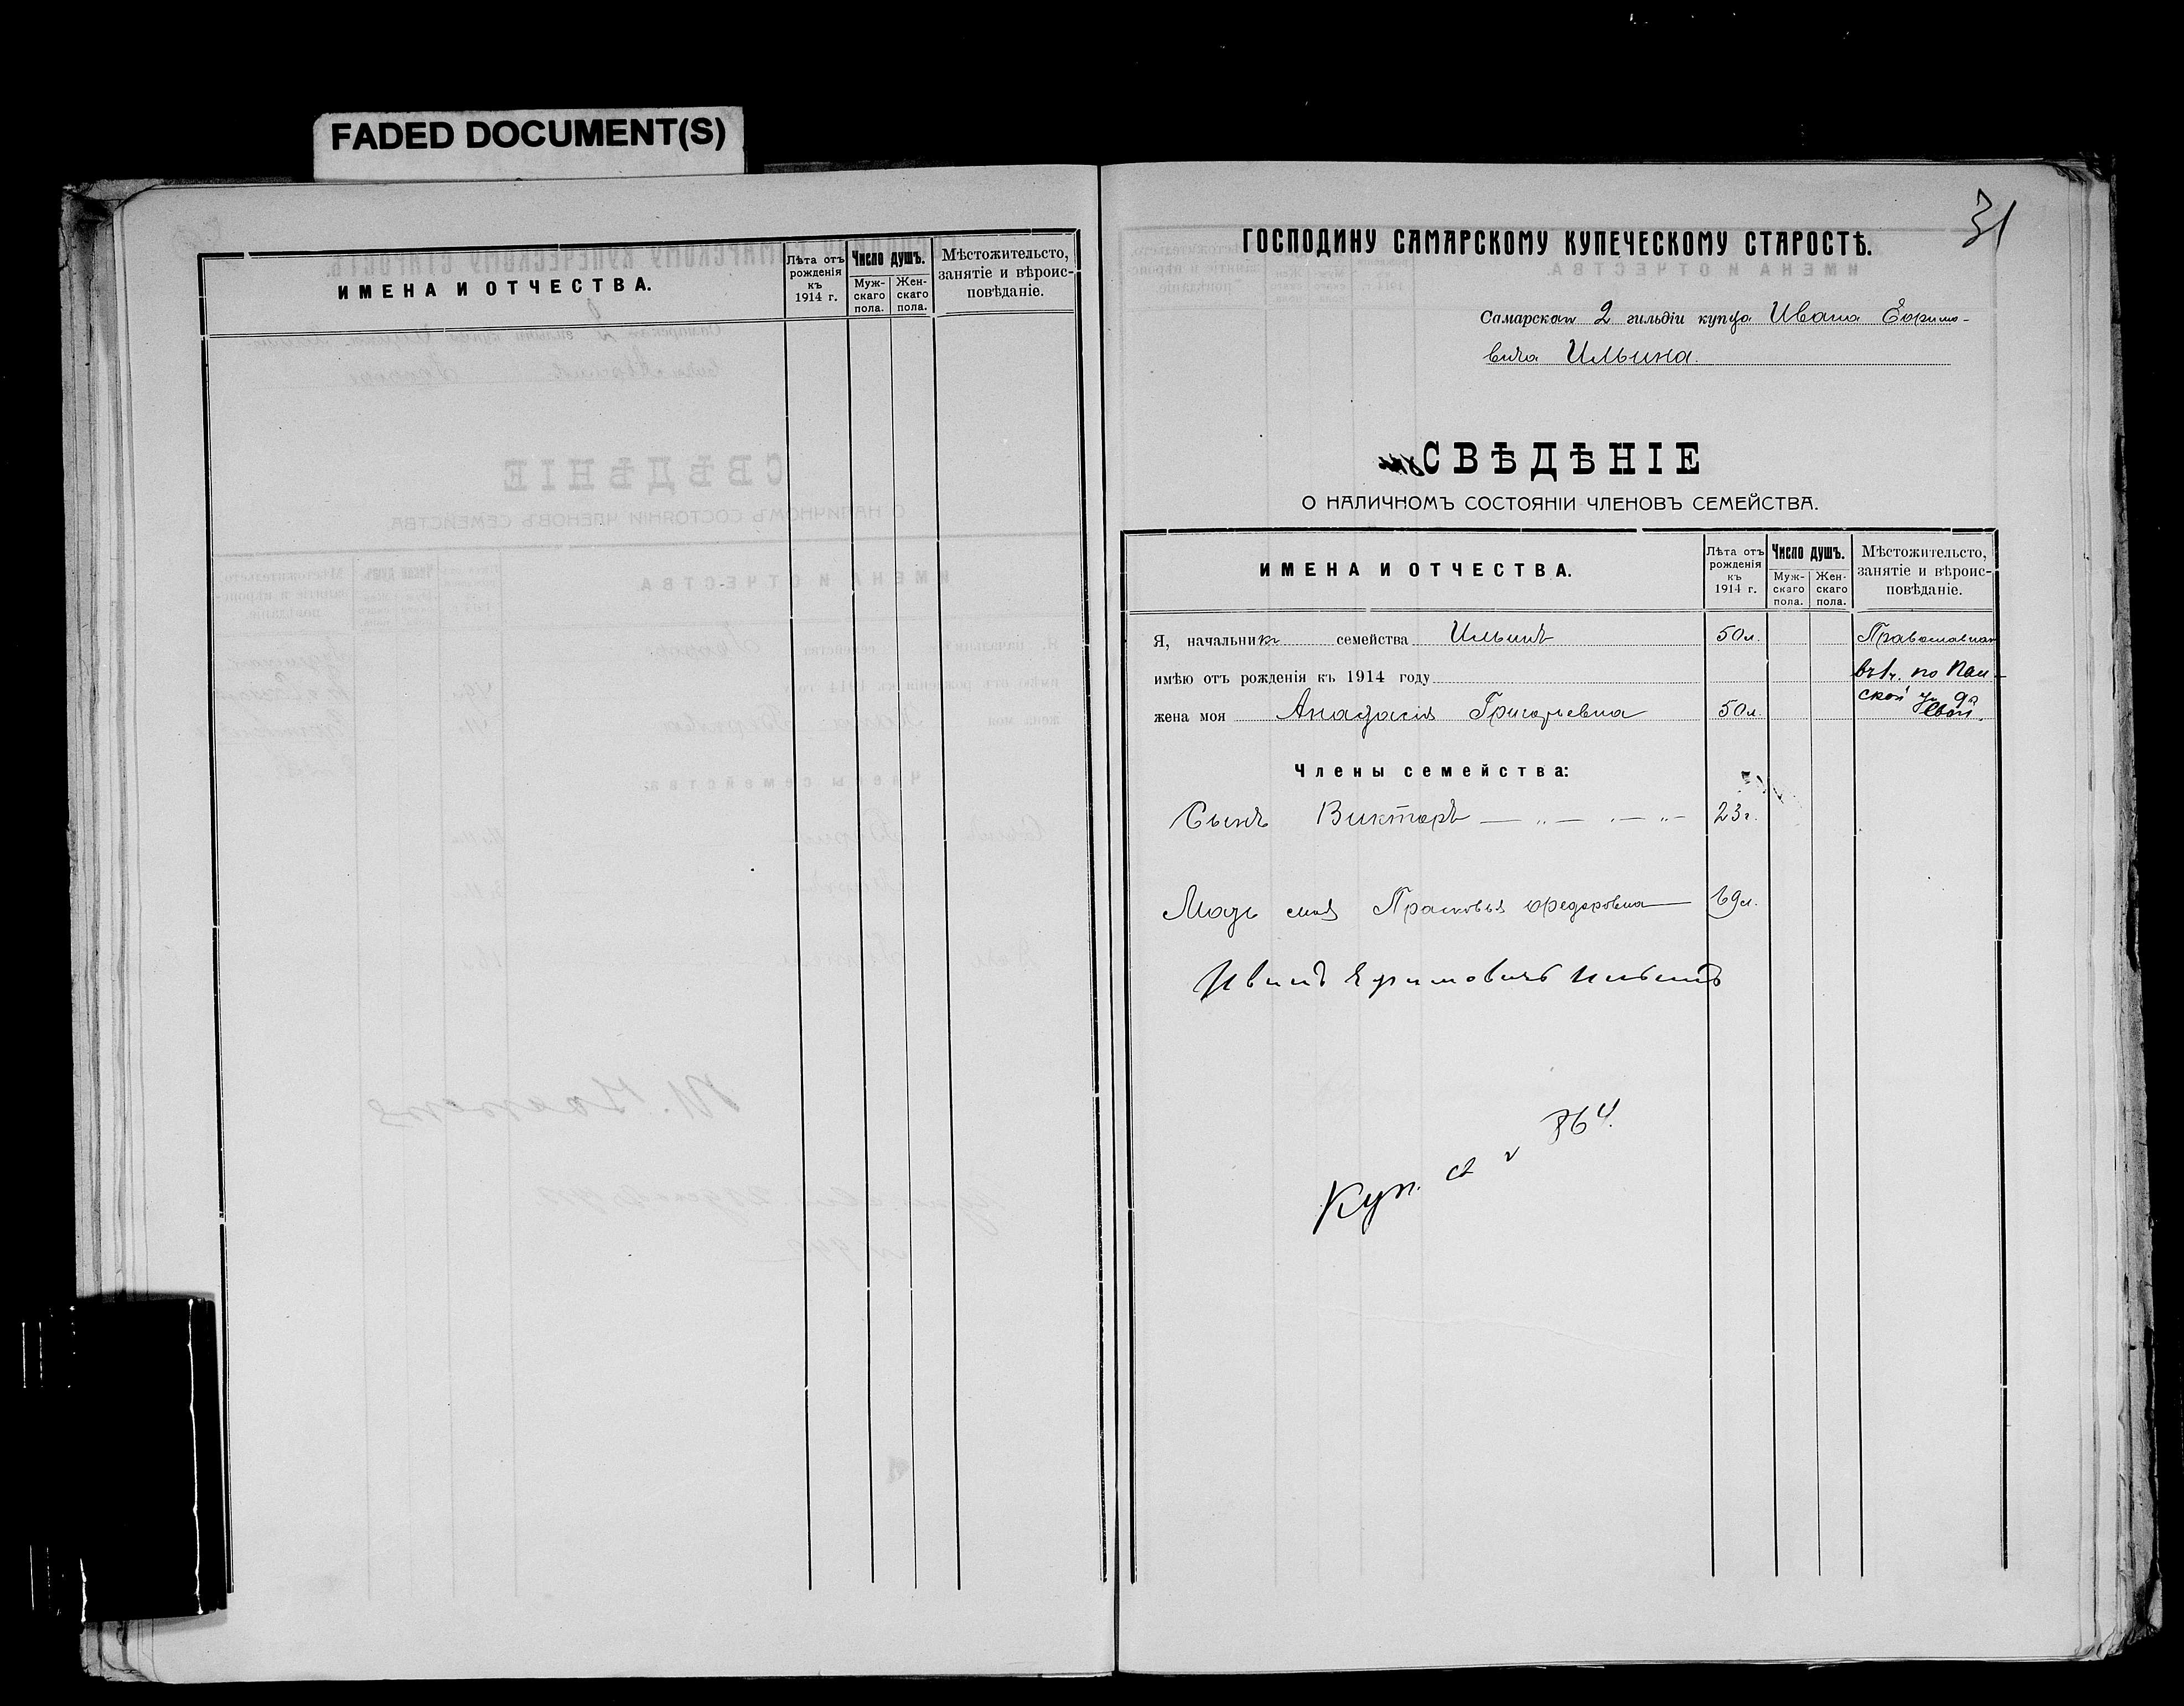 FADED DOCUMENT(S)
ИМЕНА И ОТЧЕСТВА.
Лѣта отъ рожденія къ 1914 г.
Число душъ.
Муж-скаго пола.
Жен-скаго пола.
Мѣстожительсто, занятіе и вѣроис-повѣданіе.
31
ГОСПОДИНУ САМАРСКОМУ КУПЕЧЕСКОМУ СТАРОСТѢ.
Самарскаго 2 гильдіи купца Ивана Ефимо-
вича Ильина.
СВѢДѢНІЕ
О НАЛИЧНОМЪ СОСТОЯНІИ ЧЛЕНОВЪ СЕМЕЙСТВА.
ИМЕНА И ОТЧЕСТВА.
Лѣта отъ рожденія къ 1914 г.
Число душъ.
Муж-скаго пола.
Жен-скаго пола.
Мѣстожительсто, занятіе и вѣроис-повѣданіе.
Я, начальникъ семейства Ильинъ 50 л. Православная
имѣю отъ рожденія къ 1914 году по Пан-
жена моя Анастасія Григорьевна 50 л. ской
Члены семейства:
Сынъ Викторъ — „ — „ — „ — 23 г.
Мать моя Прасковья Федоровна — 69 л.
Иванъ Ефимовичъ Ильинъ
Куп. 764